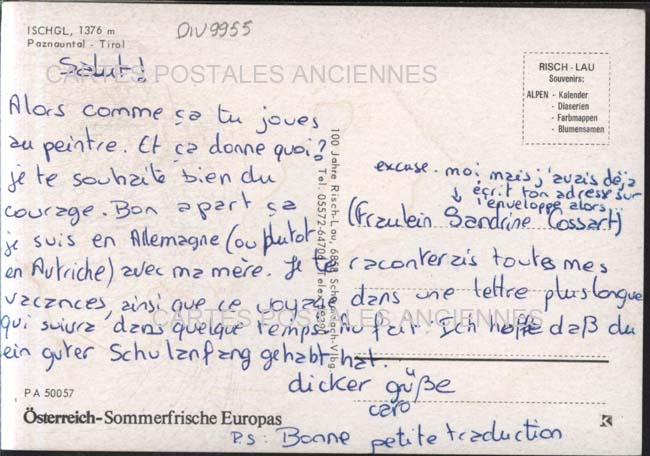 ISCHGL, 1376 m
Paznauntal - Tirol
DIV9955
Salut!
CARTES POSTALES ANCIENNES
RISCH-LAU
Souvenirs:
ALPEN - Kalender
- Diaserien
- Farbmappen
- Blumensamen
Alors comme ça tu joues
au peintre. Et ça donne quoi?
je te souhaite bien du
courage. Bon apart ça
je suis en Allemagne (ou plutot
en Autriche) avec ma mère. Je te raconterais toutes mes
vacances, ainsi que ce voyage dans une lettre plus longue
qui suivra dans quelque temps. Au fait. Ich hoffe daß du
ein guter Schulanfang gehabt hat.
excuse-moi mais j'avais déjà
écrit ton adresse sur
l'enveloppe alors..
(Fraulein Sandrine Cossart)
100 Jahre Risch-Lau, 6858 Schwarzach-Vlbg.
Tel. 05572-6470
CARTES POSTALES ANCIENNES
dicker güße
caro
PA 50057
Österreich-Sommerfrische Europas
P.S: Bonne petite traduction